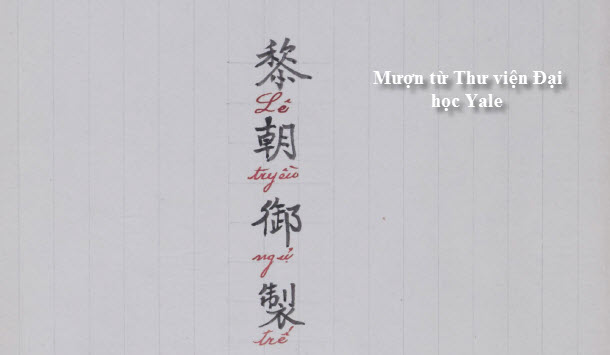 黎
Lê
朝
tryều
御
ngự
製
trế
Mượn từ Thư viện Đại
học Yale